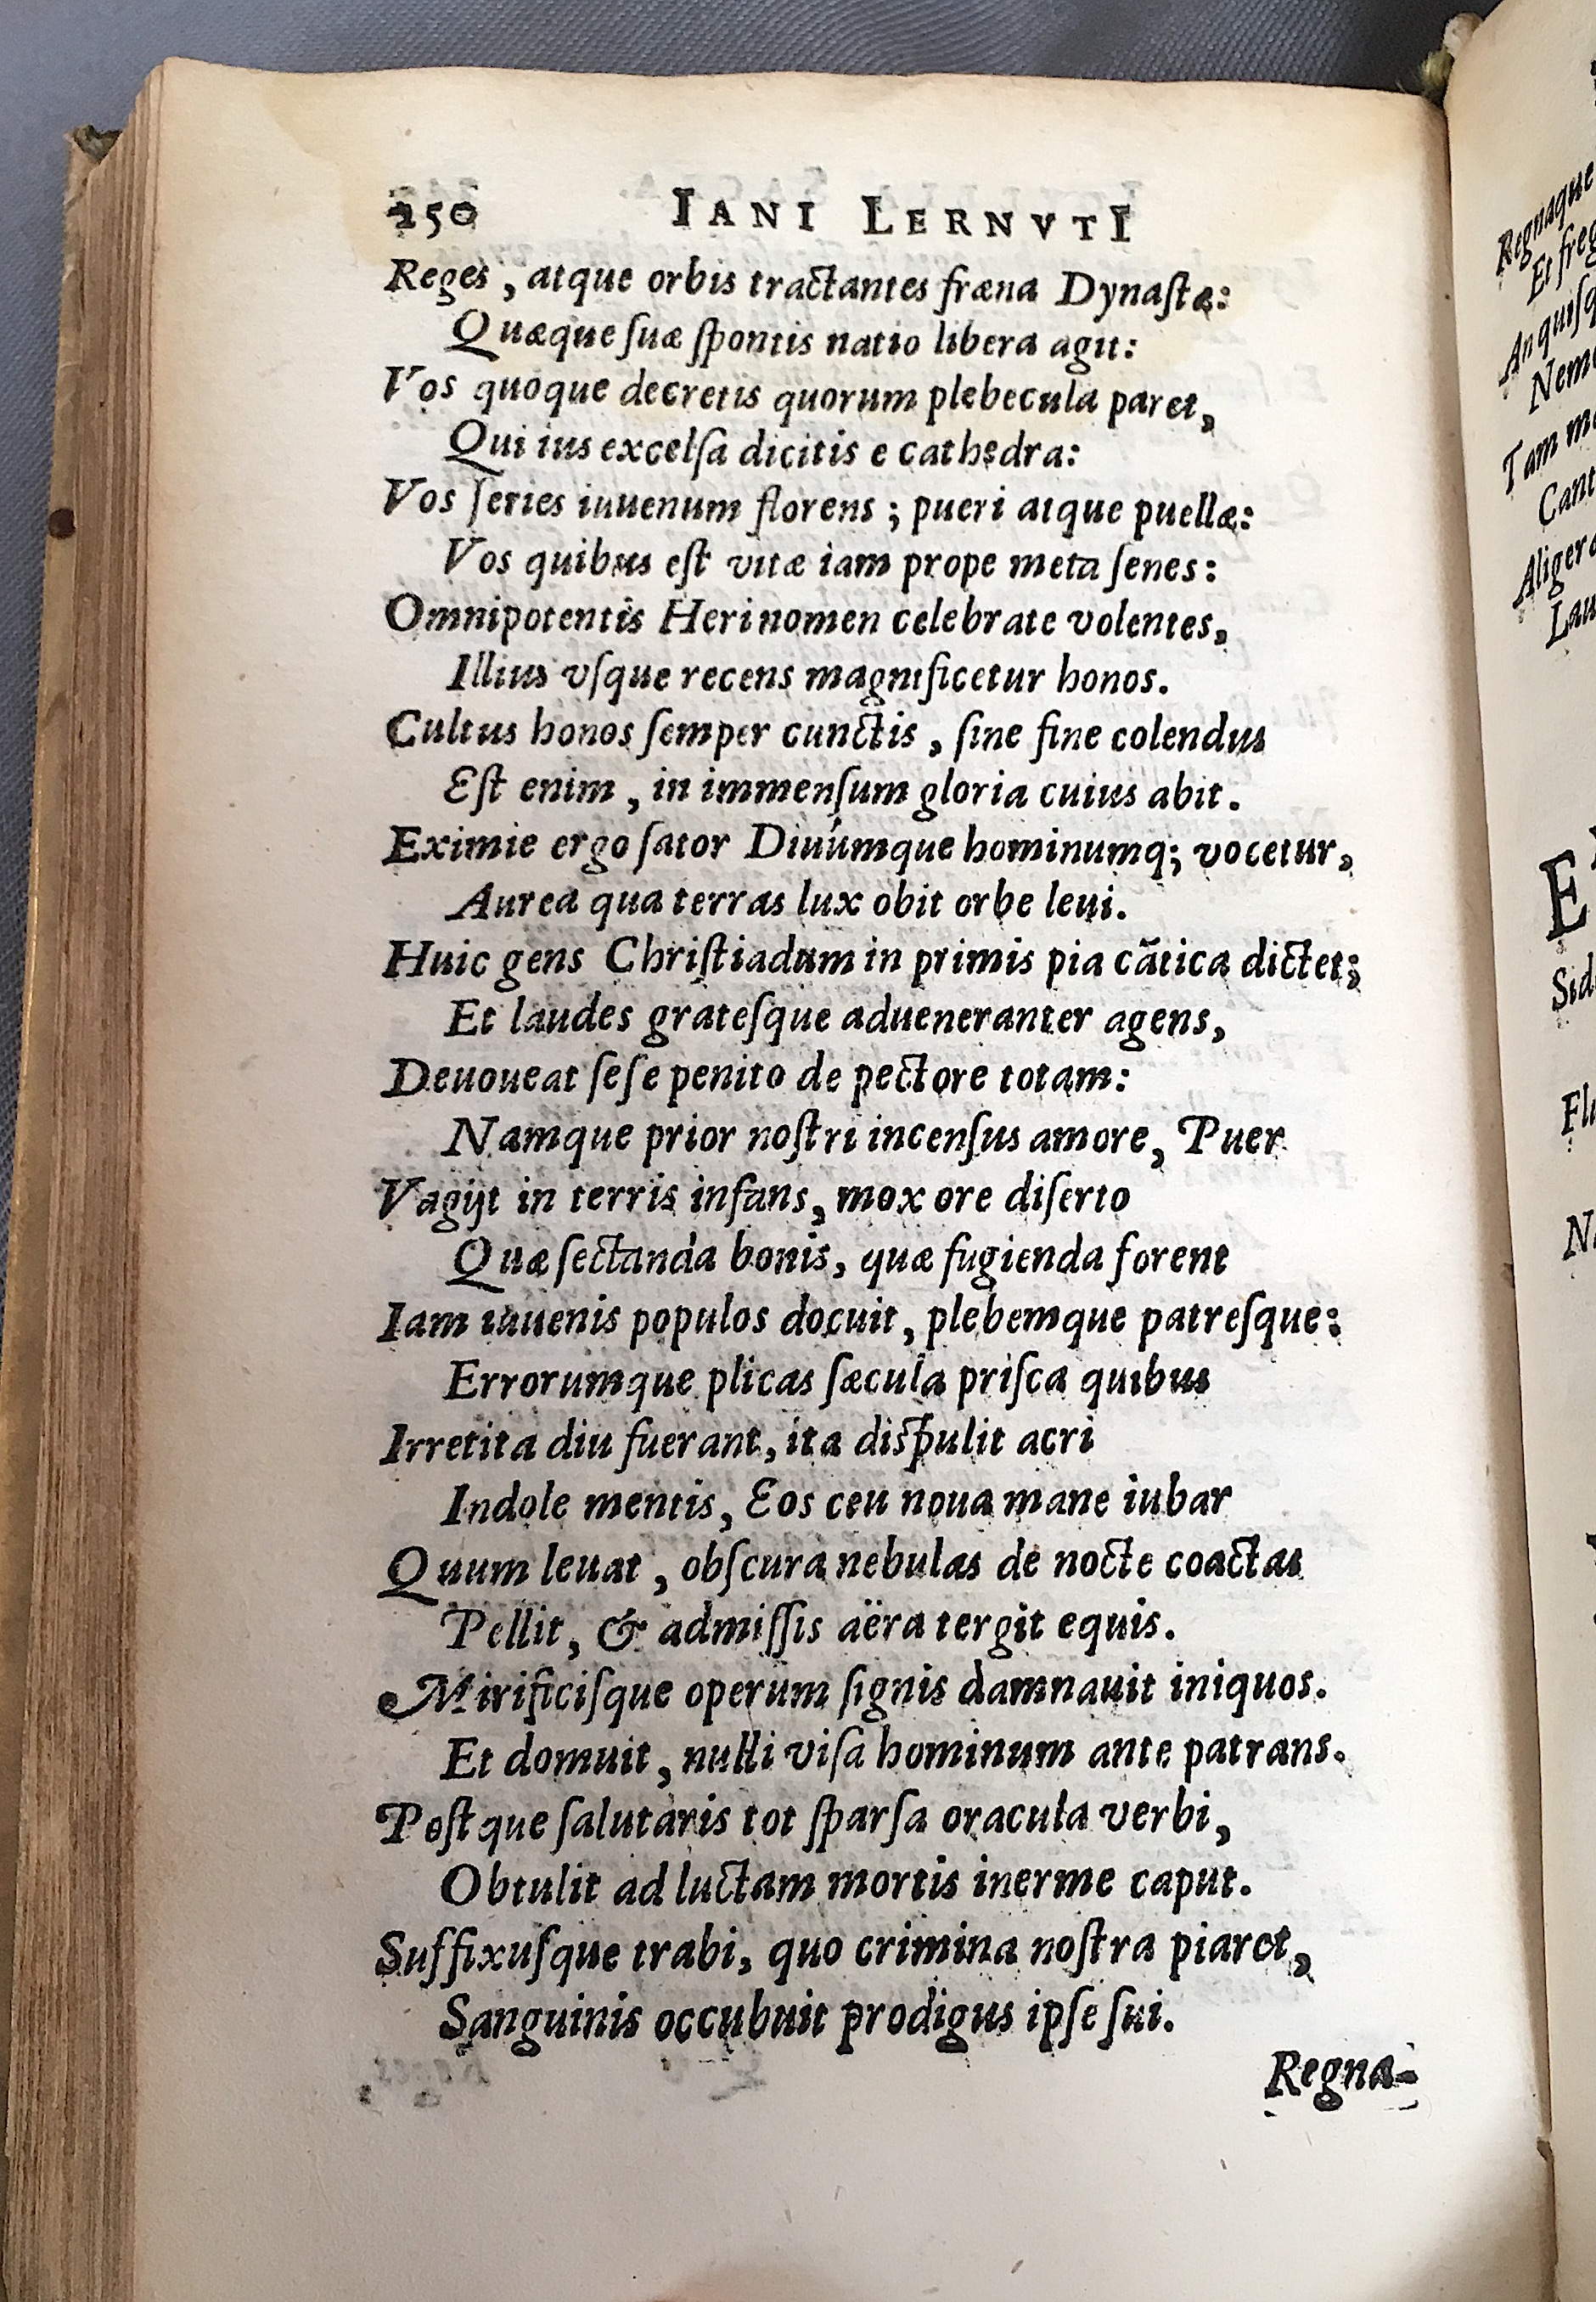 250 IANI LERNVTI
Reges, atque orbis tractantes fræna Dynaſtæ:
Quæque ſuæ ſpontis natio libera agit:
Vos quoque decretis quorum plebecula paret,
Qui ius excelſa dicitis e cathedra:
Vos ſeries iuuenum florens; pueri atque puellæ:
Vos quibus eſt vitæ iam prope meta ſenes:
Omnipotentis Heri nomen celebrate volentes,
Illius vſque recens magnificetur honos.
Cultus honos ſemper cunctis, ſine fine colendus
Eſt enim, in immenſum gloria cuius abit.
Eximie ergo ſator Diuúmque hominumq; vocetur,
Aurea qua terras lux obit orbe leui.
Huic gens Chriſtiadum in primis pia cãtica dictet;
Et laudes grateſque adueneranter agens,
Deuoueat ſeſe penito de pectore totam:
Namque prior noſtri incenſus amore, Puer
Vagijt in terris infans, mox ore diſerto
Quæ ſectanda bonis, quæ fugienda forent
Iam iuuenis populos docuit, plebemque patreſque:
Errorumque plicas ſæcula priſca quibus
Irretita diu fuerant, ita diſpulit acri
Indole mentis, Eos ceu noua mane iubar
Quum leuat, obſcura nebulas de nocte coactas
Pellit, & admiſſis aëra tergit equis.
Mirificiſque operum ſignis damnauit iniquos.
Et domuit, nulli viſa hominum ante patrans.
Poſtque ſalutaris tot ſparſa oracula verbi,
Obtulit ad luctam mortis inerme caput.
Suffixuſque trabi, quo crimina noſtra piaret,
Sanguinis occubuit prodigus ipſe ſui.
Regna-
Regnaque
Et freg
An quiſq
Nemo
Tam me
Cant
Aligera
Lau
E
Sid
Flu